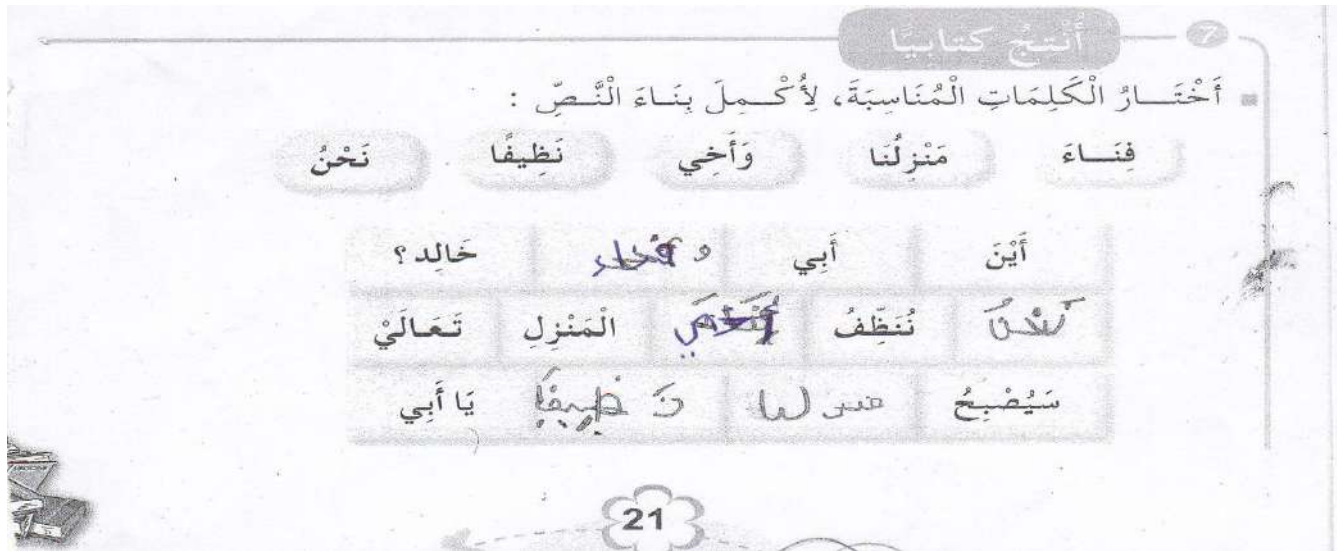 7 أُنْتِجُ كِتَابِيًّا
أَخْتَـــارُ الْكَلِمَاتِ الْمُنَاسِبَةَ، لِأُكْـــمِلَ بِنَـاءَ الْنَّـصِّ :
فِنَـــاءَ مَنْزِلُنَا وَأَخِي نَظِيفًا نَحْنُ
أَيْنَ أَبِي خَالِد ؟
نحن نُنَظِّفُ الْمَنْزِلِ تَعَـالَيْ
سَيُصْبِحُ نَظِيفًا يَا أَبِي
21